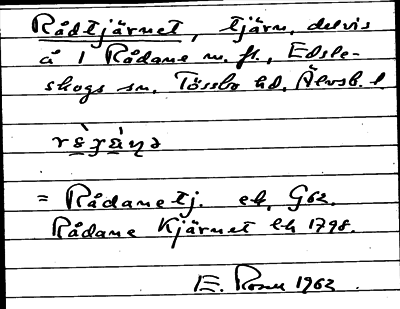 Rådtjärnet, tjärn, delvis
å 1 Rådane m. fl., Edsle-
skogs sn, Tössbo hd, Älvsb. l.
= Rådanetj. ek. G62.
Rådane Kjärnet lh 1798.
E. Rosen 1962.